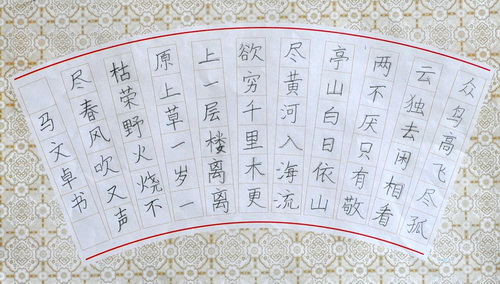 众鸟高飞尽孤
云独去闲相看
两不厌只有敬
亭山白日依山
尽黄河入海流
欲穷千里木更
上一层楼离离
原上草一岁一
枯荣野火烧不
尽春风吹又声
马文卓书